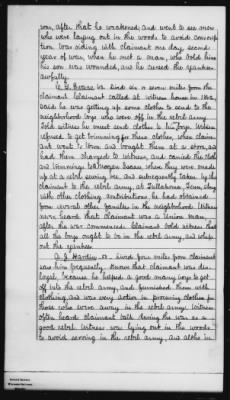 war, after that he weakened, and went to see men
who were laying out in the woods to avoid conscrip-
tion. Was riding with claimant one day, second
year of war, when he met a man, who told him
his son was wounded, and he cursed the Yankees
awfully.
lived six or seven miles from the
claimant. Claimant called at witness house in 1862,
said he was getting up some clothes to send to the
neighborhood boys who were off in the rebel army.
Told witness he must send clothes to his boys. Witness
refused to get trimmings for these clothes, when claim-
ant went to town and bought them at a store, and
had them charged to witness, and carried the cloth
and trimmings to house, where they were made
up at a rebel sewing bee, and subsequently taken by the
claimant to the rebel army, at Tullahoma, Tenn, along
with other clothing contributions he had obtained
from several other families in the neighborhood. Witness
never heard that claimant was a Union man,
after the war commenced. Claimant told witness that
all the boys ought to be in the rebel army, and whip
out the Yankees.
Hardin, sr. Lived four miles from claimant
saw him frequently. Knows that claimant was dis-
loyal, because he helped a good many boys to get
off into the rebel army, and furnished them with
clothing, and was very active in procuring clothes for
those who were away in the rebel army. Witness
often heard claimant talk during the war as a
good rebel. Witness was lying out in the woods
to avoid serving in the rebel army, and while in